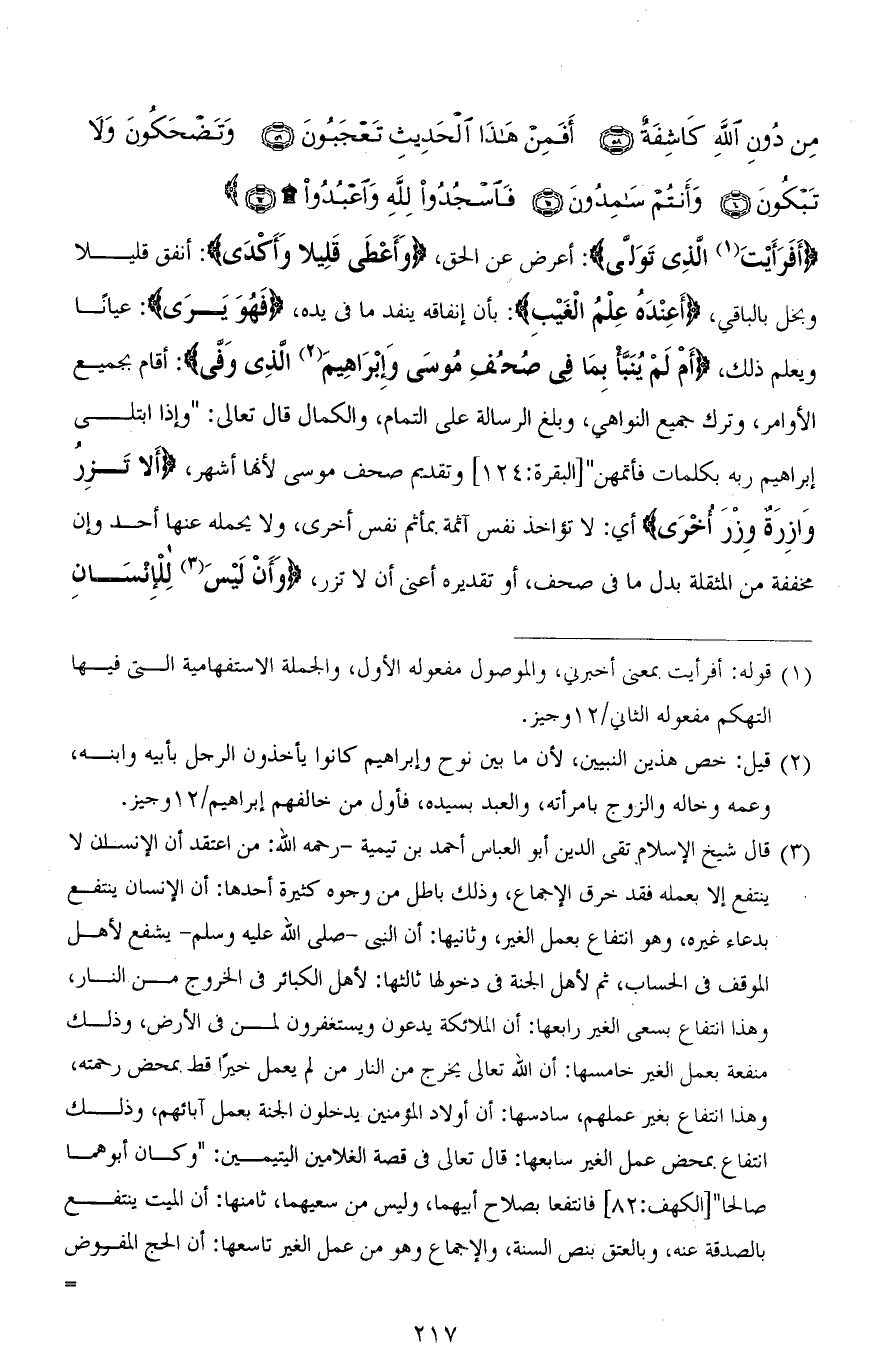 مِن دُونِ ٱللَّهِ كَاشِفَةٌ ۝٥٨ أَفَمِنْ هَٰذَا ٱلْحَدِيثِ تَعْجَبُونَ ۝٥٩ وَتَضْحَكُونَ وَلَا
تَبْكُونَ ۝٦٠ وَأَنتُمْ سَٰمِدُونَ ۝٦١ فَٱسْجُدُوا۟ لِلَّهِ وَٱعْبُدُوا۟ ۩ ۝٦٢ ﴾
﴿أَفَرَأَيْتَ(١) الَّذِى تَوَلَّى﴾: أعرض عن الحق، ﴿وَأَعْطَى قَلِيلا وَأَكْدَى﴾: أنفق قليلا
وبخل بالباقي، ﴿أَعِنْدَهُ عِلْمُ الْغَيْبِ﴾: بأن إنفاقه ينفد ما فى يده، ﴿فَهُوَ يَرَى﴾: عيانًا
ويعلم ذلك، ﴿أَمْ لَمْ يُنَبَّأْ بِمَا فِى صُحُفِ مُوسَى وَإِبْرَاهِيمَ(٢) الَّذِى وَفَّى﴾: أقام بجميع
الأوامر، وترك جميع النواهي، وبلغ الرسالة على التمام، والكمال قال تعالى: "وإذا ابتلى
إبراهيم ربه بكلمات فأتمهن"[البقرة:١٢٤] وتقديم صحف موسى لأنها أشهر، ﴿أَلا تَزِرُ
وَازِرَةٌ وِزْرَ أُخْرَى﴾ أي: لا تؤاخذ نفس آثمة بمأثم نفس أخرى، ولا يحمله عنها أحد وإن
مخففة من المثقلة بدل ما فى صحف، أو تقديره أعنى أن لا تزر، ﴿وَأَنْ لَيْسَ(٣) لِلْإِنْسَانِ
(١) قوله: أفرأيت بمعنى أخبرني، والموصول مفعوله الأول، والجملة الاستفهامية التى فيها
التهكم مفعوله الثاني/١٢وجيز.
(٢) قيل: خص هذين النبيين، لأن ما بين نوح وإبراهيم كانوا يأخذون الرجل بأبيه وابنه،
وعمه وخاله والزوج بامرأته، والعبد بسيده، فأول من خالفهم إبراهيم/١٢وجيز.
(٣) قال شيخ الإسلام تقى الدين أبو العباس أحمد بن تيمية -رحمه الله: من اعتقد أن الإنسان لا
ينتفع إلا بعمله فقد خرق الإجماع، وذلك باطل من وجوه كثيرة أحدها: أن الإنسان ينتفع
بدعاء غيره، وهو انتفاع بعمل الغير، وثانيها: أن النبى -صلى الله عليه وسلم- يشفع لأهل
الموقف فى الحساب، ثم لأهل الجنة فى دخولها ثالثها: لأهل الكبائر فى الخروج من النار،
وهذا انتفاع بسعى الغير رابعها: أن الملائكة يدعون ويستغفرون لمن فى الأرض، وذلك
منفعة بعمل الغير خامسها: أن الله تعالى يخرج من النار من لم يعمل خيرًا قط بمحض رحمته،
وهذا انتفاع بغير عملهم، سادسها: أن أولاد المؤمنين يدخلون الجنة بعمل آبائهم، وذلك
انتفاع بمحض عمل الغير سابعها: قال تعالى فى قصة الغلامين اليتيمين: "وكان أبوهما
صالحا"[الكهف:٨٢] فانتفعا بصلاح أبيهما، وليس من سعيهما، ثامنها: أن الميت ينتفع
بالصدقة عنه، وبالعتق بنص السنة، والإجماع وهو من عمل الغير تاسعها: أن الحج المفروض
=
٢١٧